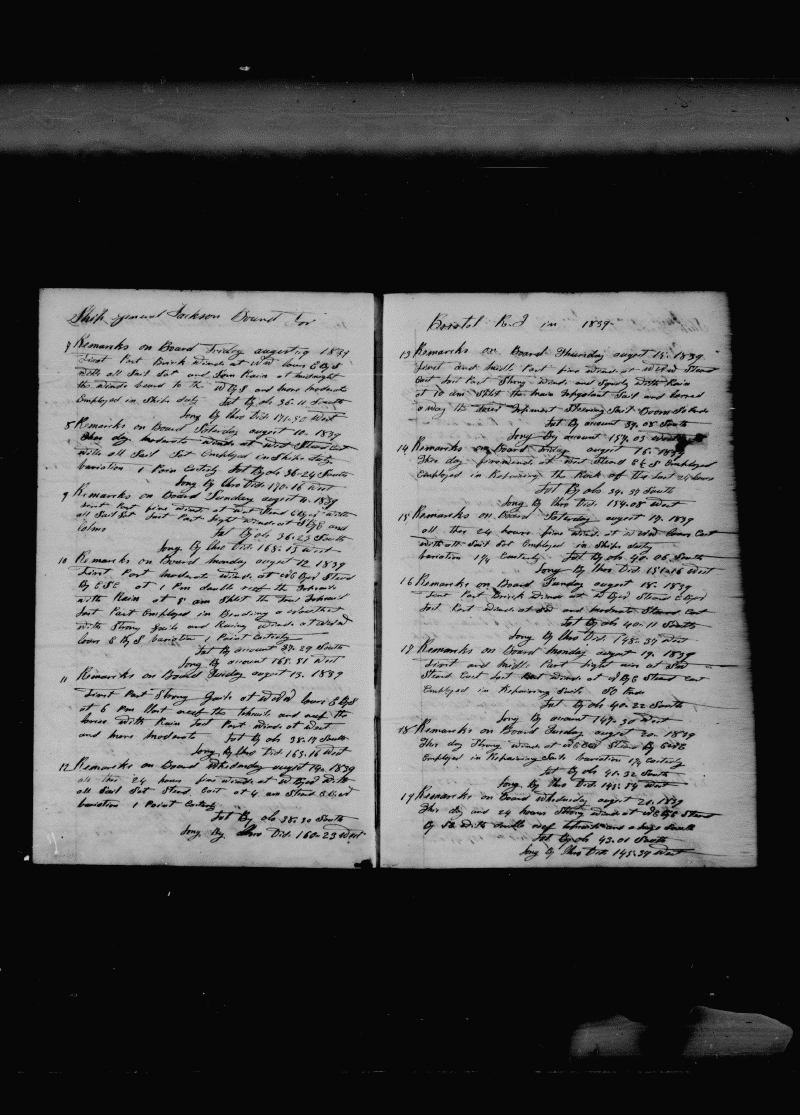 Ship general Jackson Bound for
7 Remarks on Board Friday august 9 1839
First Part Brisk winds at WNW cours E By S
with all Sail Sat and Som Rain at midnight
the winds hauld to the W By S and more moderate
Employed in Ships duty Lat By ob 36-11 South
Long By Chro Dit. 171-50 West
8 Remarks on Board Saturday august 10. 1839
this day moderate winds at West Steard East
with all Sail Sat Employed in Ships duty
variation 1 Point Easterly Lat By ob 36-24 South
Long By Chro Dit. 170-16 West
9 Remarks on Board Sunday august 11. 1839
first Part fine winds at West Steard E By S with
all Sail Sat Last Part light winds at S By E and
Calms
Lat By ob. 36-23 South
Long By Chro Dit. 168-15 West
10 Remarks on Board monday august 12 1839
First Part moderate winds at Steard
By ESE at 1 Pm double reeft the Topsails
with Rain at 8 am Split the Fore Topsail
Last Part Employed in Bending a
with Strong gails and Raing winds at
Cours E By S variation 1 Point Easterly
Lat By acount 37-29 South
Long By acount 165-51 West
11 Remarks on Board Tuesday august 13. 1839
First Part Strong Gails at WNW Cours E By S
at 6 Pm Clost reeft the topsails and reeft the
Courses with Rain Last Part winds at West
and more moderate Lat By ob 38-17 South
Long By Chro Dit 163-16 West
12 Remarks on Board Whednesday august 14. 1839
all this 24 hours fine winds at W By S with
all Sail Sat Steard East at 4 am Steard E By S
variation 1 Point Easterly
Lat By ob 38-30 South
Long By Chro Dit. 160-23 West
Bristol R.I in 1839-
13 Remarks on Board Thursday august 15. 1839
First and midle Part fine winds at WNW Steard
East Last Part Strong winds and Squaly with Rain
at 10 am Split the main topgalant Sail and Carred
a way the Lower Studing Sail Boom
Lat By acount 39-08 South
Long By acount 157-03 West
14 Remarks on Board Friday august 16. 1839
This day fine winds at West Steard E By S Employed
Employed in Repairing the Work off the Last 24 hours
Lat By ob 39-37 South
Long By Chro Dit. 154-08 West
15 Remarks on Board Saturday august 17. 1839
all this 24 hours fine winds at WNW Cours East
with all Sail Sat Employed in Ships duty
variation 1¼ Easterly Lat By ob. 40-06 South
Long By Chro Dit 151-16 West
16 Remarks on Board Sunday august 18. 1839
First Part Brisk Winds at W By S Steard E By S
Last Part Winds at SW and moderate Steard East
Lat By ob 40-11 South
Long By Chro Dit. 148-37 West
17 Remarks on Board monday august 19. 1839
First and midle Part light airs at SW
Steard East Last Part Winds at Steard East
Employed in Repairing Sails
Lat By ob 40-22 South
Long By acount 147-30 West
18 Remarks on Board Tuesday august 20. 1839
This day Strong winds at Steard By
Employed in Repairing Sails variation 1¼ Easterly
Lat By ob 41-32 South
Long By Chro Dit. 145-54 West
19 Remarks on Board Whednesday august 21. 1839
This day and 24 hours Strong winds at Steard
By SE with double reef topsails and a large South
Lat By ob 43-01 South
Long By Chro Dit. 145-37 West